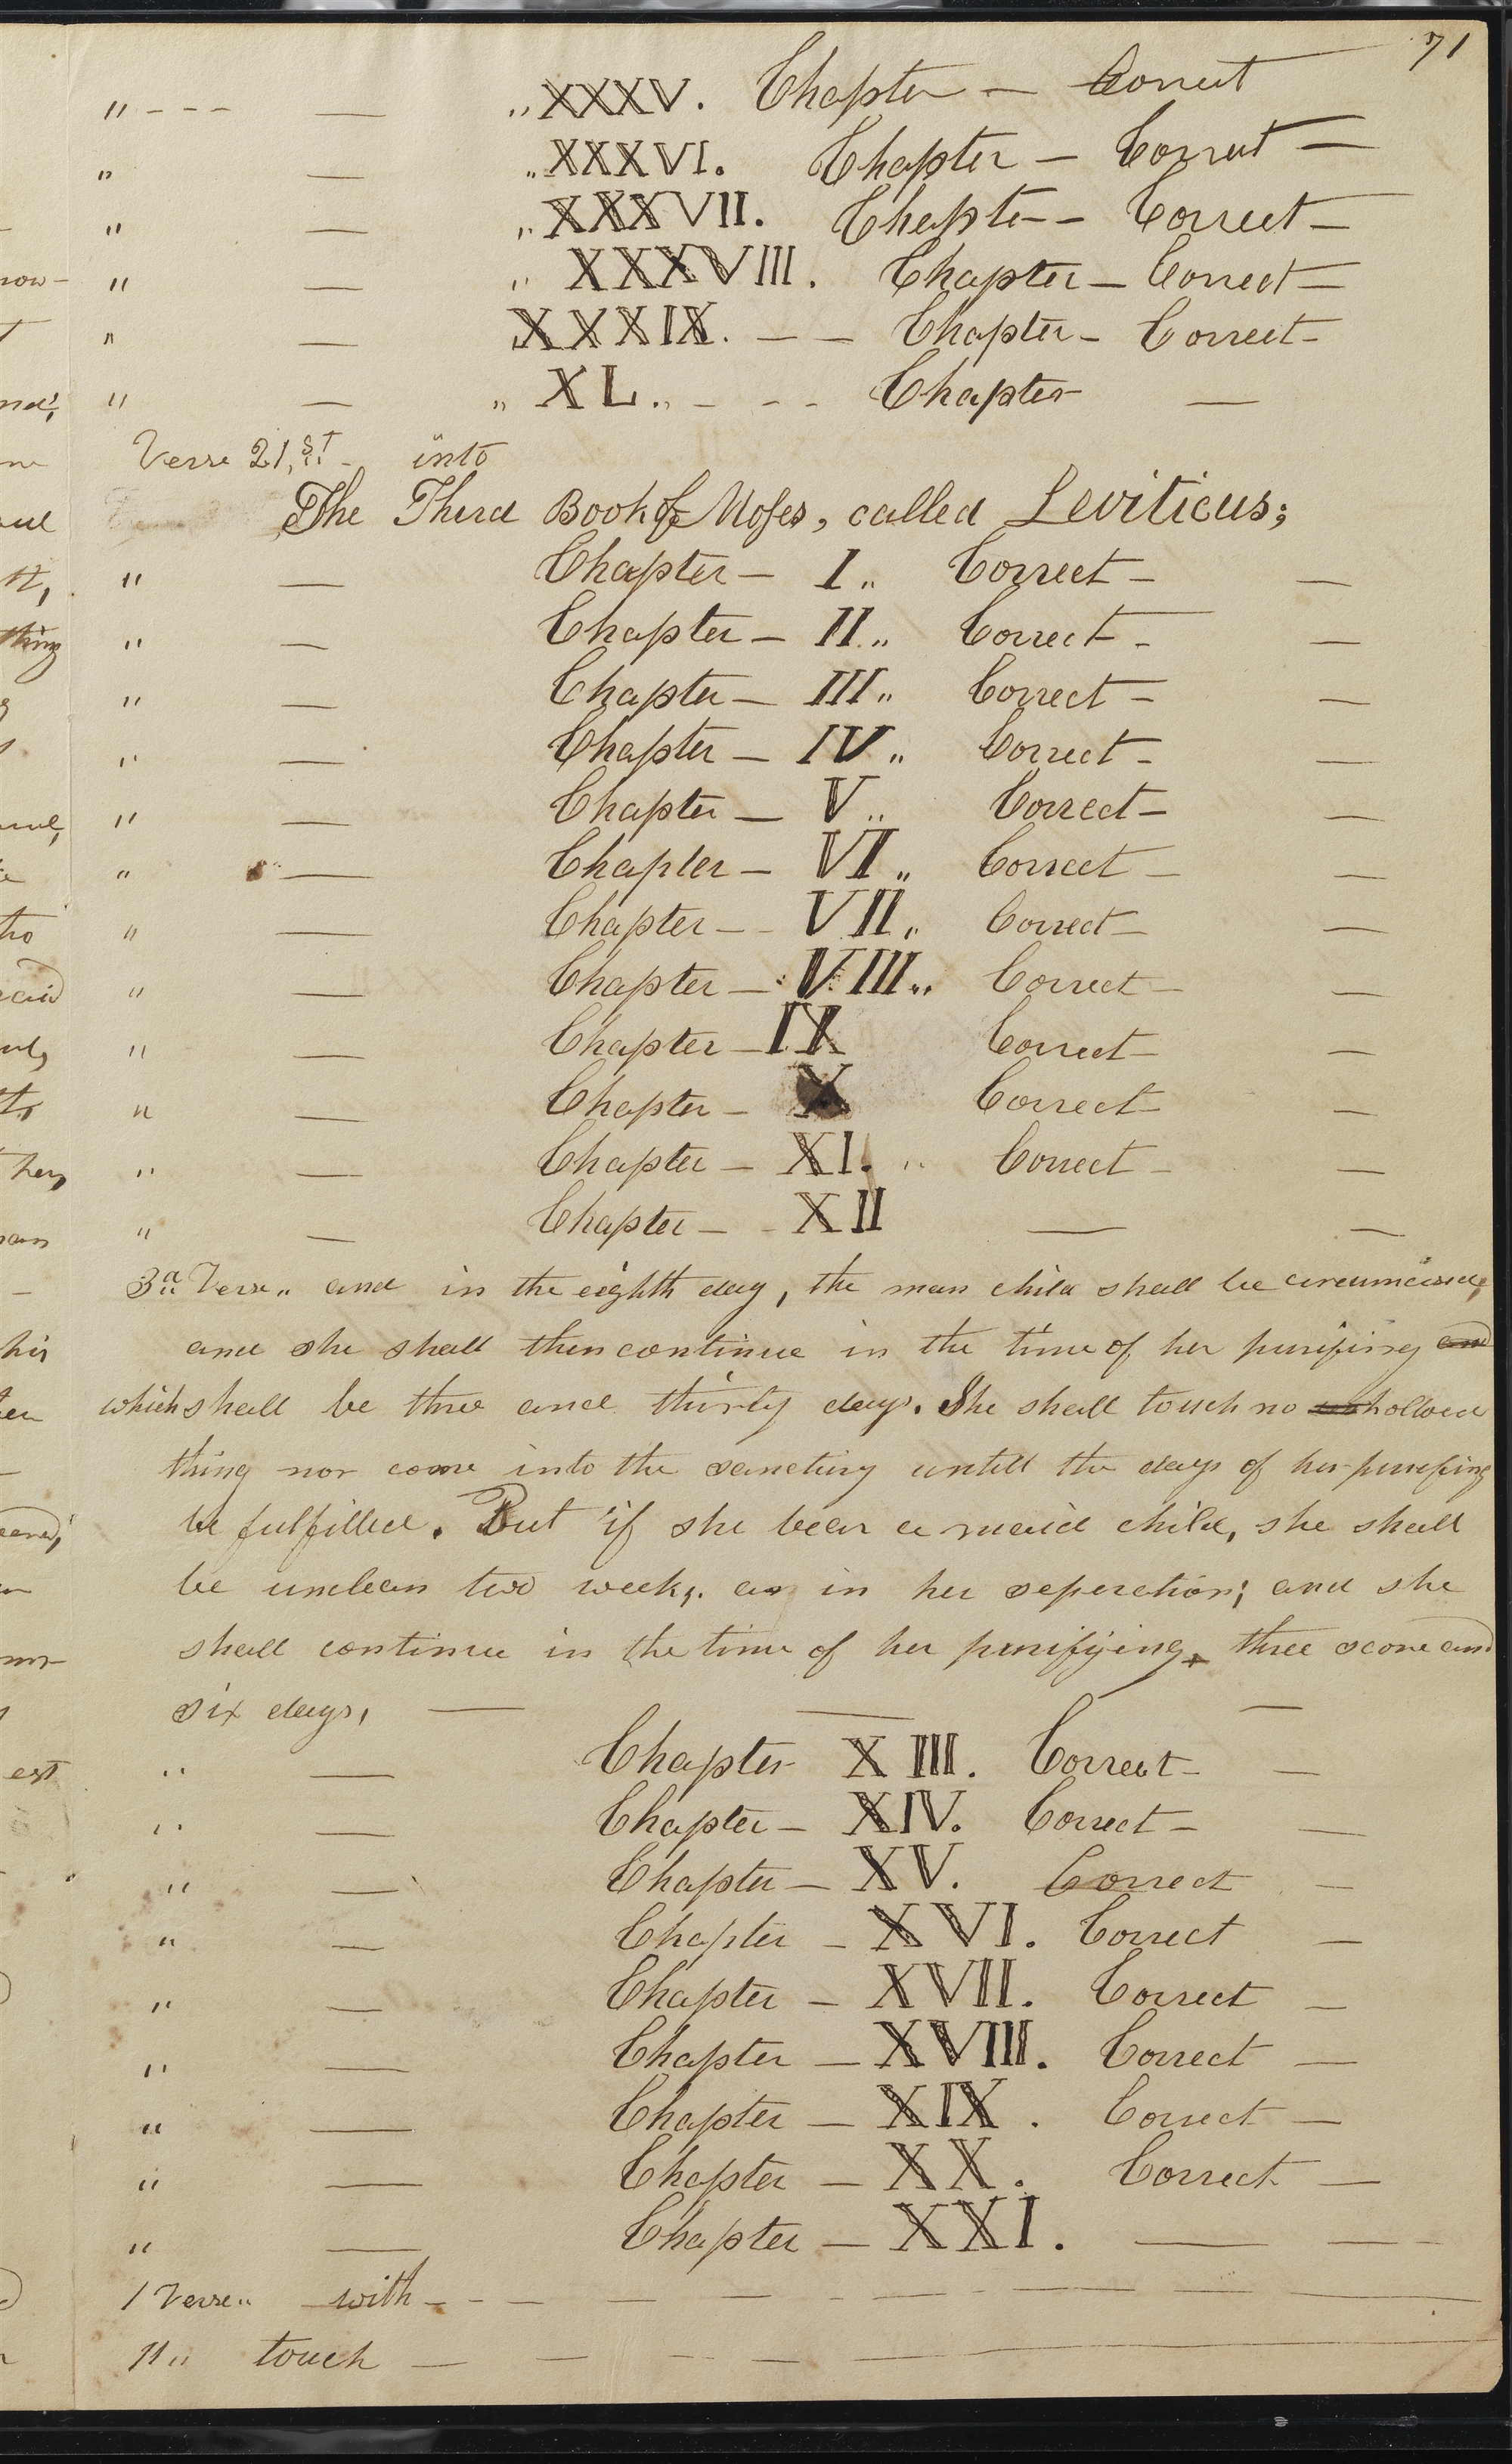 71
" - - - — " XXXV. Chapter — Correct
" — " XXXVI. Chapter — Correct —
" — " XXXVII. Chapter - Correct —
" — " XXXVIII. Chapter — Correct —
" — XXXIX. — — Chapter - Correct —
" — " XL. - - - Chapter —
Verse 21,ST - into
The Third Book of Moses, called Leviticus;
" — Chapter — I " Correct — —
" — Chapter — II " Correct - —
" — Chapter — III " Correct — —
" — Chapter — IV " Correct — —
" — Chapter — V " Correct — —
" — Chapter — VI " Correct — —
" — Chapter - - VII " Correct — —
" — Chapter — VIII " Correct — —
" — Chapter — IX Correct — —
" — Chapter — X Correct — —
" — Chapter — XI. " Correct — —
" — Chapter — - XII — —
3d Verse " and in the eighth day, the man child shall be circumcised;
and she shall then continue in the time of her purifing and
which shall be three and thirty days. She shall touch no hollowed
thing nor come into the sanctury untill the days of her purifing
be fulfilled. But if she bear a maid child, she shall
be unclean two weeks. as in her seperation; and she
shall continue in the time of her purifying, three score and
six days, — — —
" — Chapter XIII. Correct — —
" — Chapter — XIV. Correct — —
" — Chapter — XV. Correct —
" — Chapter — XVI. Correct —
" — Chapter — XVII. Correct —
" — Chapter — XVIII. Correct —
" — Chapter — XIX. Correct —
" — Chapter — XX. Correct —
" — Chapter — XXI. — — -
1 Verse " with - - — — — - — — — —
11 " touch — — - — — —